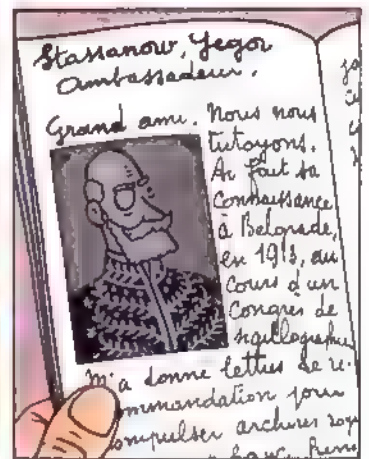 Stassanow, Yegor
Ambassadeur.
Grand ami. Nous nous
tutoyons.
Ai fait sa
connaissance
à Belgrade,
en 1913, au
cours d'un
Congrès de
sigillographie
M'a donné lettres de re-
commandation pour
compulser archives